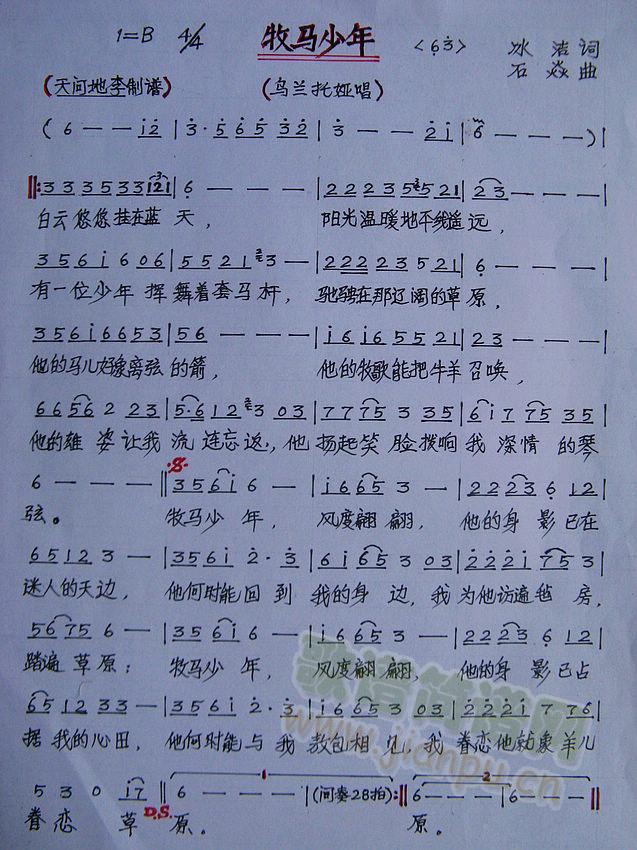 1=B 4/4 牧马少年 <6 3> 冰洁词
石焱曲
(天问地李制谱) (乌兰托娅唱)
( 6 — — i2 | 3· 5 6 5 32 | 3 — — 2i | 6 — — — ) |
‖: 3 3 3 5 3 3 121 | 6 — — — | 2 2 2 3 5 5 21 | 2 3 — — — |
白云悠悠挂在蓝天， 阳光温暖地平线遥远，
3 5 6 i 6 0 6 | 5 5 2 1 3 — | 2 2 2 2 3 5 2 1 | 6 — — — |
有一位少年挥舞着套马杆，驰骋在那辽阔的草原，
3 5 6 i 6 6 5 3 | 5 6 — — — | i 6 i 6 5 5 2 1 | 2 3 — — — |
他的马儿好象离弦的箭， 他的牧歌能把牛羊召唤，
6 6 5 6 2 2 3 | 5·6 1 2 3 0 3 | 7 7 7 5 3 3 5 | 6 i 7 7 5 3 5 |
他的雄姿让我流连忘返，他扬起笑脸拨响我深情的琴
6 — — — ‖ 3 5 6 i 6 — | i 6 6 5 3 — | 2 2 2 3 6 1 2 |
弦。 牧马少年， 风度翩翩， 他的身影已在
6 5 1 2 3 — | 3 5 6 i 2· 3 | 6 i 6 5 3 0 3 | 2 2 2 i 7 5 3 |
迷人的天边， 他何时能回到我的身边，我为他访遍毡房，
5 6 7 5 6 — | 3 5 6 i 6 — | i 6 6 5 3 — | 2 2 2 3 6 1 2 |
踏遍草原； 牧马少年， 风度翩翩， 他的身影已占
6 5 1 2 3 3 — | 3 5 6 i 2· 3 | i 6 6 5 3 0 3 | 2 2 2 i 7 7 6 |
据我的心田，他何时能与我敖包相见，我眷恋他就象羊儿
5 3 0 i7 D.S. | 1 6 — — — | (间奏28拍) :‖ 2 6 — — — | 6 — — — ‖
眷恋草原。 原。
歌谱简谱网
www.jianpu.cn